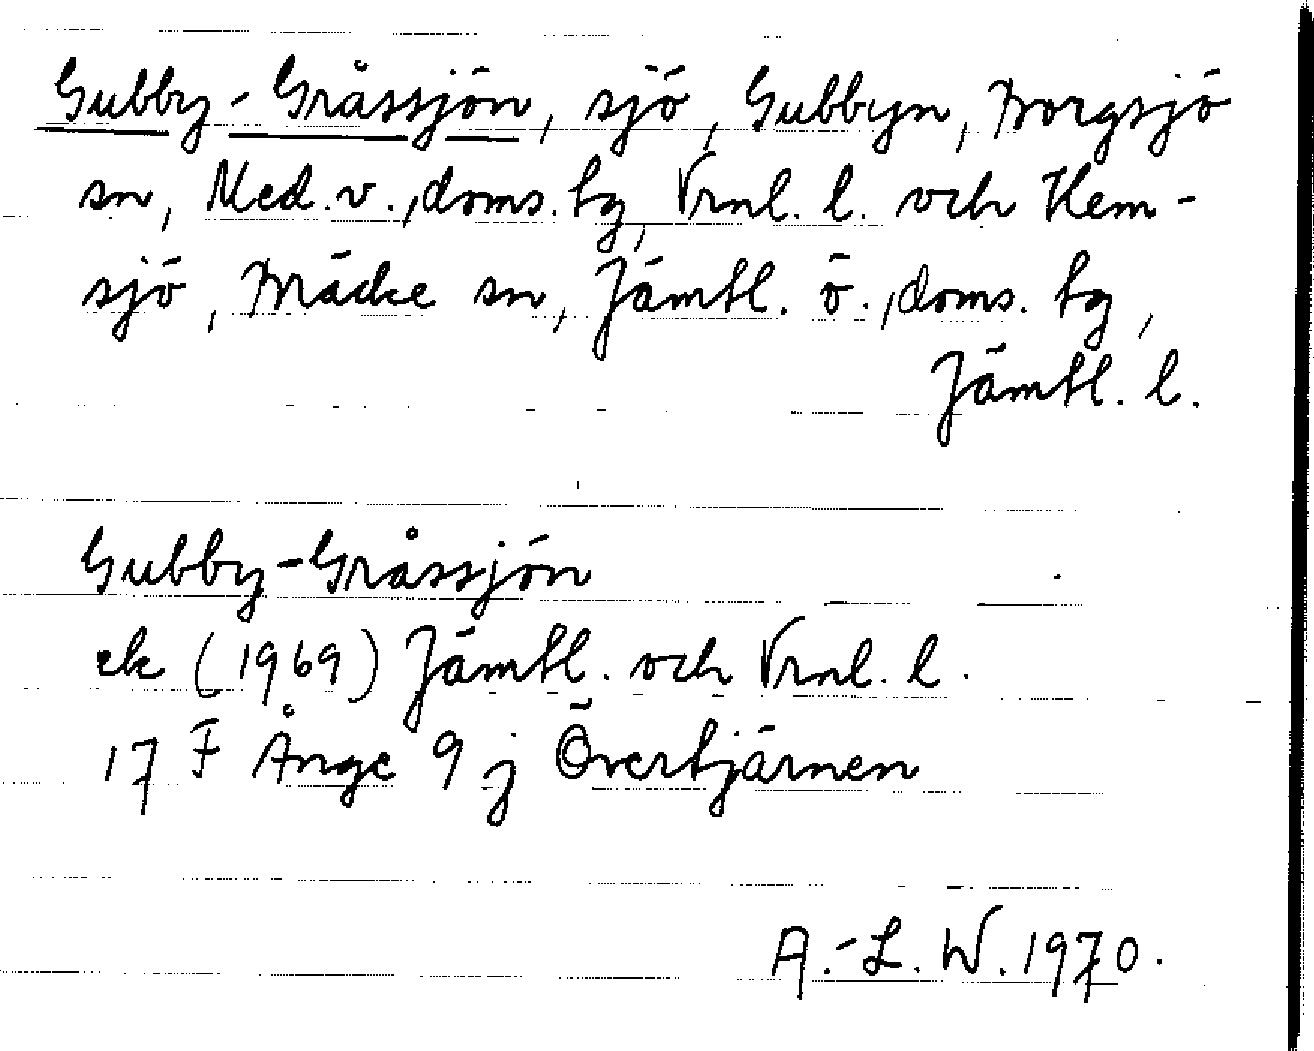 Gubby-Gråssjön, sjö, Gubbyn, Borgsjö
sn, Med. v., doms. tg, Vrnl. l. och Hem-
sjö, Bräcke sn, Jämtl. ö., doms. tg,
Jämtl. l.
Gubby-Gråssjön
ek (1969) Jämtl. och Vrnl. l.
17 F Ånge 9 j Övertjärnen
A.-L. W. 1970.